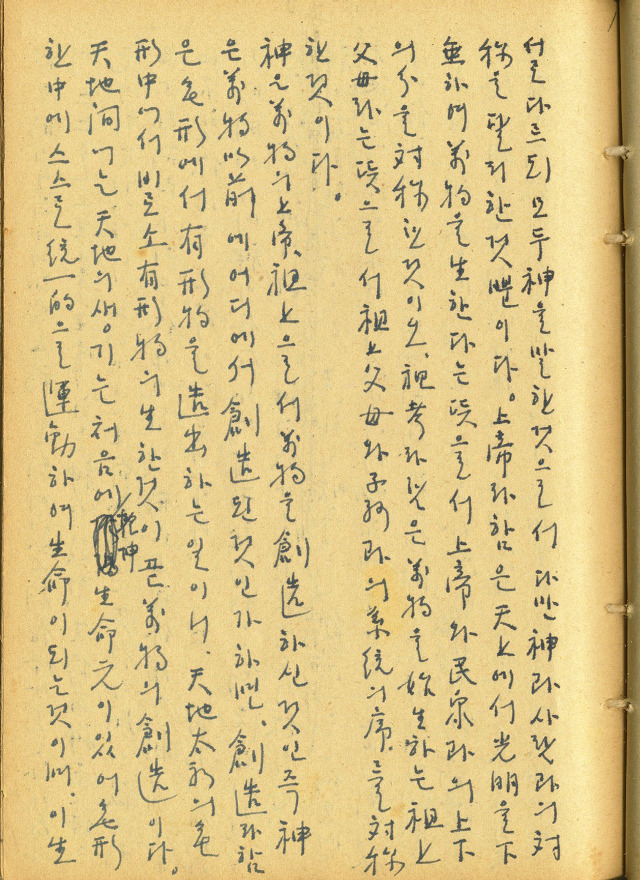 서로 다르되 모두 神을 말한 것으로서 다만 神과 사람과의 对
称을 달리한 것뿐이다。上帝라 함은 天上에서 光明을 下
無하여 萬物을 生한다는 뜻으로서 上帝와 民衆과의 上下
의 分을 対称한 것이오、祖考라 함은 萬物을 始生하는 祖上
父母라는 뜻으로서 祖上父母와 子孫과의 系統의 序를 対称
한 것이다。
神은 萬物의 上帝、祖上으로서 萬物을 創造하신 것인즉 神
은 萬物以前에 어디에서 創造된 것인가 하면、創造라 함
은 無形에서 有形物을 造出하는 일이니、天地太初의 無
形中에서 비로소 有形物의 生한 것이 곧 萬物의 創造이다。
天地間에는 天地의 생기는 처음에 乾坤 生命元이 있어 無形
한 中에 스스로 統一的으로 運動하여 生命이 되는 것이며、이 生